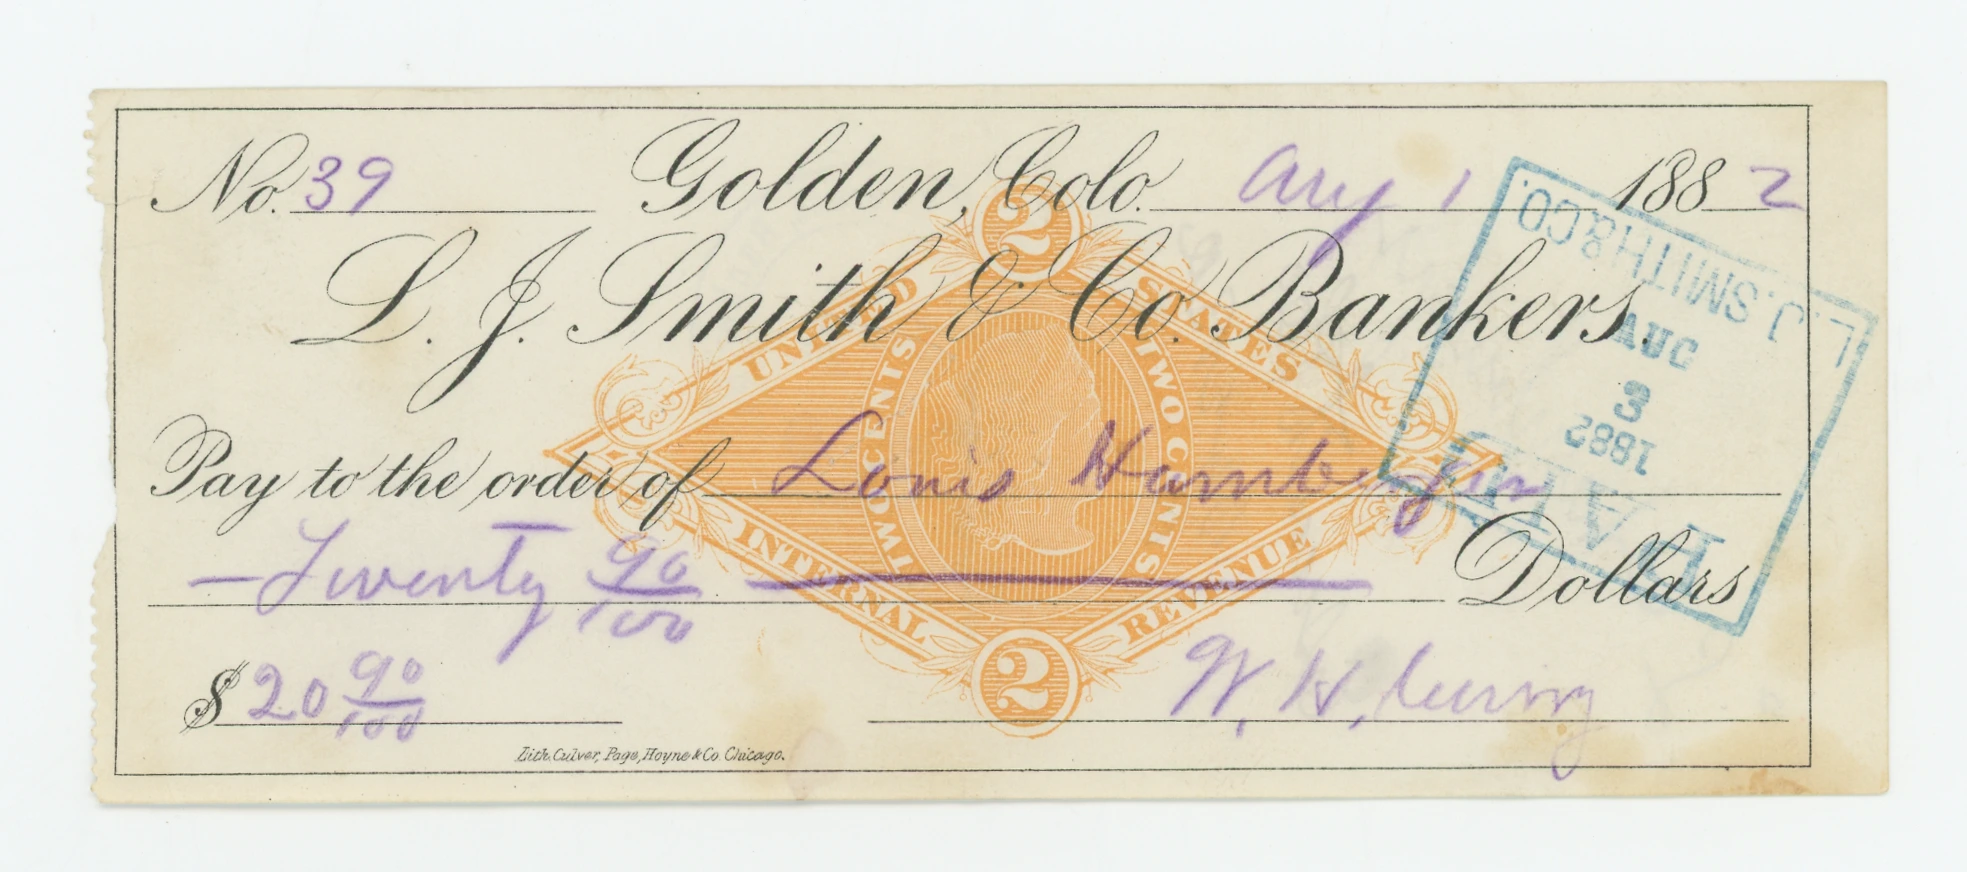 No. 39 Golden, Colo. Aug 1 1882
L. J. Smith & Co. Bankers.
Pay to the order of Louis Hamburger
— Twenty 90/100 Dollars
$ 20 90/100
W. H.
Lith. Culver, Page, Hoyne & Co. Chicago.
2
UNITED STATES
TWO CENTS TWO CENTS
INTERNAL REVENUE
2
L. J. SMITH & CO.
AUG
3
1882
PAID